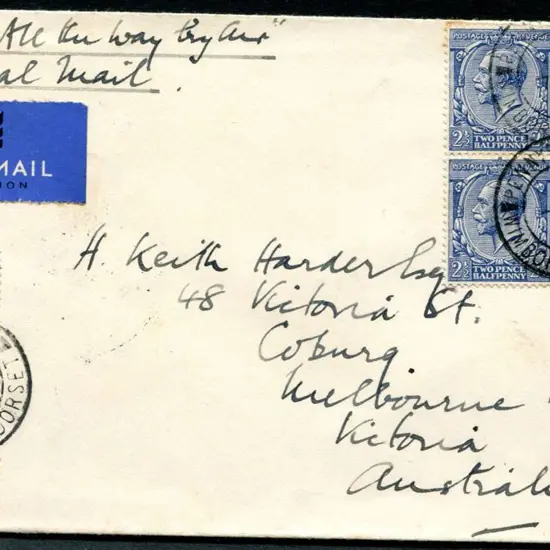 All the way by air"
al Mail.
MAIL
ION
POSTAGE REVENUE
2½ TWO PENCE HALFPENNY
POSTAGE
2½ TWO PENCE HALFPENNY
WIMBO
DORSET
H. Keith Harder Esq
48 Victoria St.
Coburg
Melbourne
Victoria
Austral